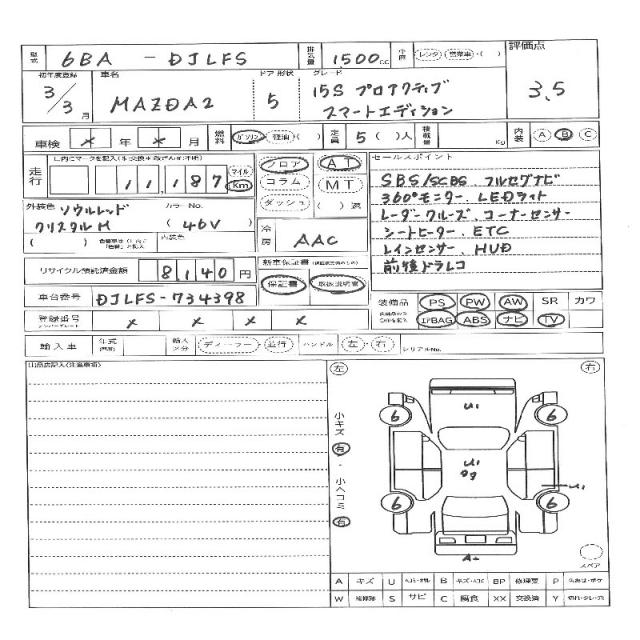 型式 6BA - DJLFS 排気量 1,500cc 中古 (レンタ)(営業車)・( ) 評価点
初年度登録 車名 ドア 形状 グレード
3/3月 MAZDA2 5 15S プロアクティブ スマートエディション 3.5
車検 × 年 × 月 燃料 ガソリン・軽油・( ) 定員 5 ( )人 積載量 Kg 内装 A B C
走行 11,187 マイル Km フロア コラム ダッシュ AT MT ( )速
セールスポイント
SBS/SCBS フルセグナビ
360°モニター LEDライト
レーダークルーズ コーナーセンサー
シートヒーター、ETC
レインセンサー、HUD
前後ドラレコ
外装色 ソウルレッド クリスタルM カラーNo. (46V)
( ) 内装色
冷房 AAC
リサイクル預託済金額 8,140円 新車保証書 保証書 取扱説明書
車台番号 DJLFS-734398
装備品 PS PW AW SR カワ
エアBAG ABS ナビ TV
登録番号 × × × ×
輸入車 年式 輸入区分 ディーラー・並行 ハンドル 左・右 シリアルNo.
出品店記入(注意事項)
左 右
小キズ 有・小ヘコミ 有
6 U1 6
U1
U1
6 6
A1
スペア
A キズ U B BP 修理要 P
W S サビ C 腐食 XX 交換済 Y